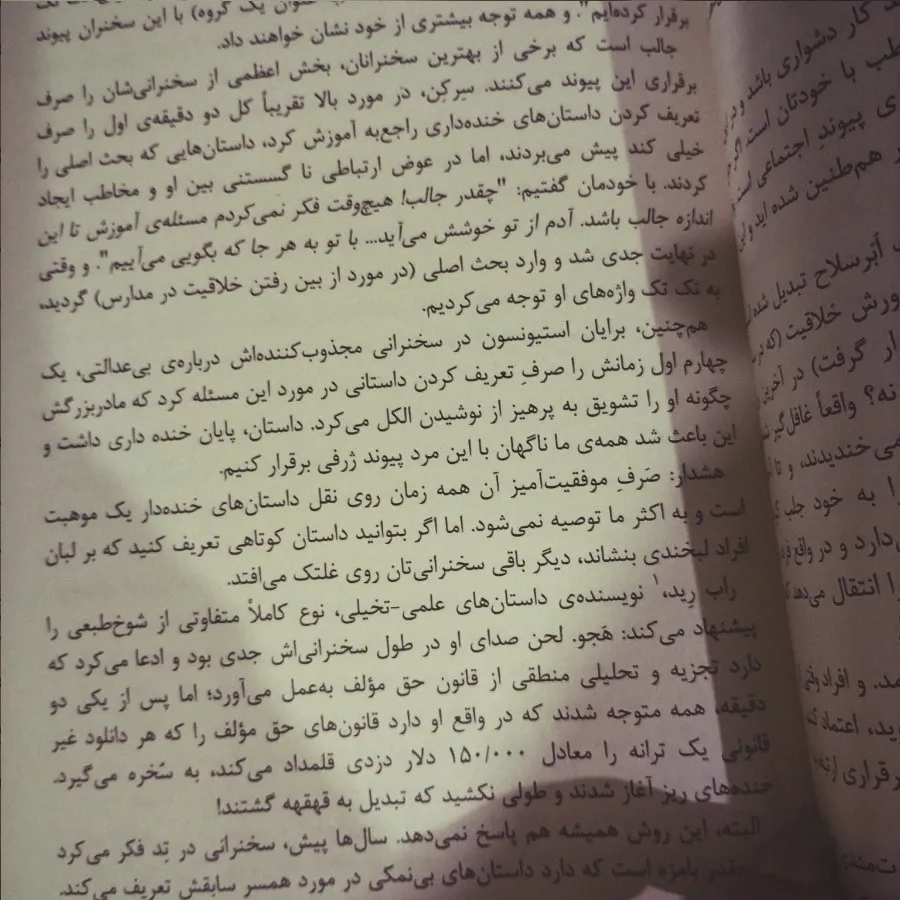 عنوان یک گروه) با این سخنران پیوند
برقرار کرده‌ایم". و همه توجه بیشتری از خود نشان خواهند داد.
جالب است که برخی از بهترین سخنرانان، بخش اعظمی از سخنرانی‌شان را صرف
برقراری این پیوند می‌کنند. سِر‌کِن، در مورد بالا تقریباً کل دو دقیقه‌ی اول را صرف
تعریف کردن داستان‌های خنده‌داری راجع‌به آموزش کرد، داستان‌هایی که بحث اصلی را
خیلی کند پیش می‌بردند، اما در عوض ارتباطی نا گسستنی بین او و مخاطب ایجاد
کردند. با خودمان گفتیم: "چقدر جالب! هیچ‌وقت فکر نمی‌کردم مسئله‌ی آموزش تا این
اندازه جالب باشد. آدم از تو خوشش می‌آید... با تو به هر جا که بگویی می‌آییم". و وقتی
در نهایت جدی شد و وارد بحث اصلی (در مورد از بین رفتن خلاقیت در مدارس) گردید،
به تک تک واژه‌های او توجه می‌کردیم.
هم‌چنین، برایان استیونسون در سخنرانی مجذوب‌کننده‌اش درباره‌ی بی‌عدالتی، یک
چهارم اول زمانش را صرفِ تعریف کردن داستانی در مورد این مسئله کرد که مادربزرگش
چگونه او را تشویق به پرهیز از نوشیدن الکل می‌کرد. داستان، پایان خنده داری داشت و
این باعث شد همه‌ی ما ناگهان با این مرد پیوند ژرفی برقرار کنیم.
هشدار: صَرفِ موفقیت‌آمیز آن همه زمان روی نقل داستان‌های خنده‌دار یک موهبت
است و به اکثر ما توصیه نمی‌شود. اما اگر بتوانید داستان کوتاهی تعریف کنید که بر لبان
افراد لبخندی بنشاند، دیگر باقی سخنرانی‌تان روی غلتک می‌افتد.
راب رِید،۱ نویسنده‌ی داستان‌های علمی-تخیلی، نوع کاملاً متفاوتی از شوخ‌طبعی را
پیشنهاد می‌کند: هَجو. لحن صدای او در طول سخنرانی‌اش جدی بود و ادعا می‌کرد که
دارد تجزیه و تحلیلی منطقی از قانون حق مؤلف به‌عمل می‌آورد؛ اما پس از یکی دو
دقیقه، همه متوجه شدند که در واقع او دارد قانون‌های حق مؤلف را که هر دانلود غیر
قانونی یک ترانه را معادل ۱۵۰/۰۰۰ دلار دزدی قلمداد می‌کند، به سُخره می‌گیرد.
خنده‌های ریز آغاز شدند و طولی نکشید که تبدیل به قهقهه گشتند!
البته، این روش همیشه هم پاسخ نمی‌دهد. سال‌ها پیش، سخنرانی در تِد فکر می‌کرد
چقدر بامزه است که دارد داستان‌های بی‌نمکی در مورد همسر سابقش تعریف می‌کند.
کار دشواری باشد و
با خودتان است.
پیوندِ اجتماعی است
هم‌طنین شده اید و
اَبَرسلاح تبدیل شده
خلاقیت (که
گرفت) در
نه؟ واقعاً غافل‌گیر
می خندیدند، و تا
به خود جلب
دارد و در واقع
را انتقال می‌دهد
و افراد وقتی
اعتماد
برقراری